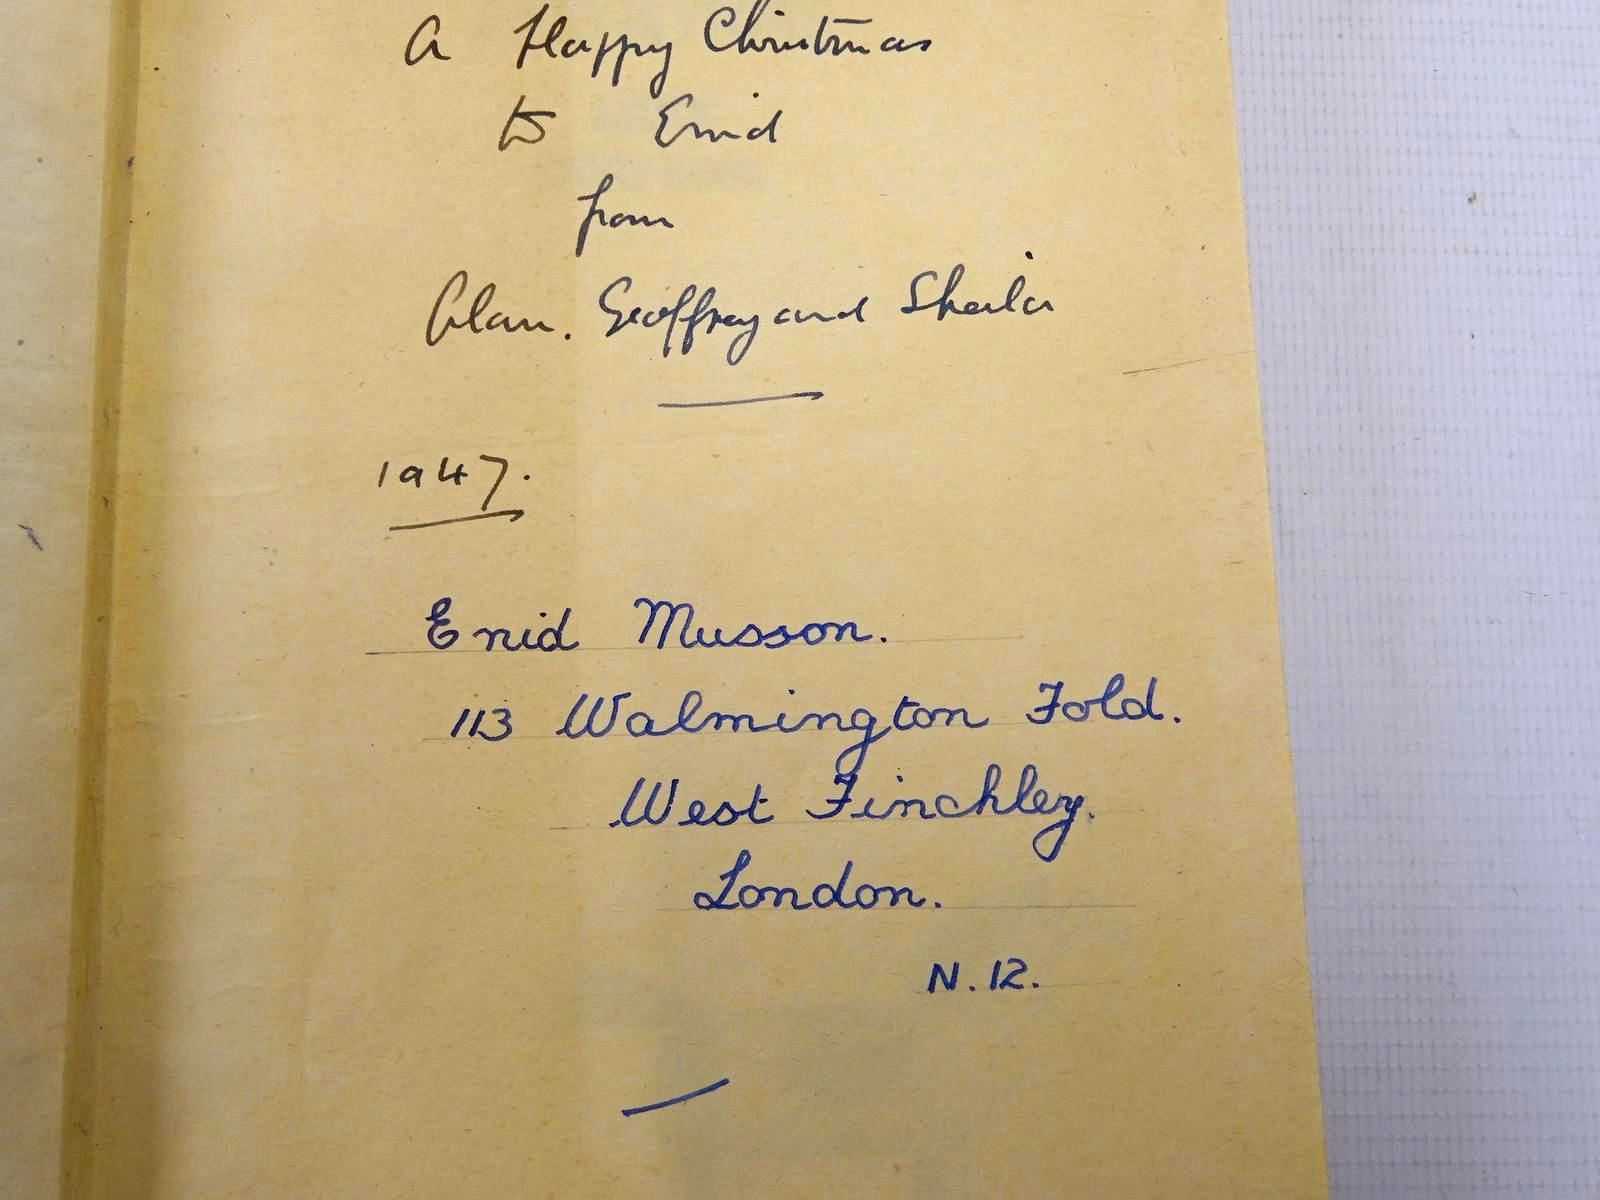 A Happy Christmas
to Enid
from
Alan. Geoffrey and Sheila
1947.
Enid Musson.
113 Walmington Fold.
West Finchley.
London.
N. 12.